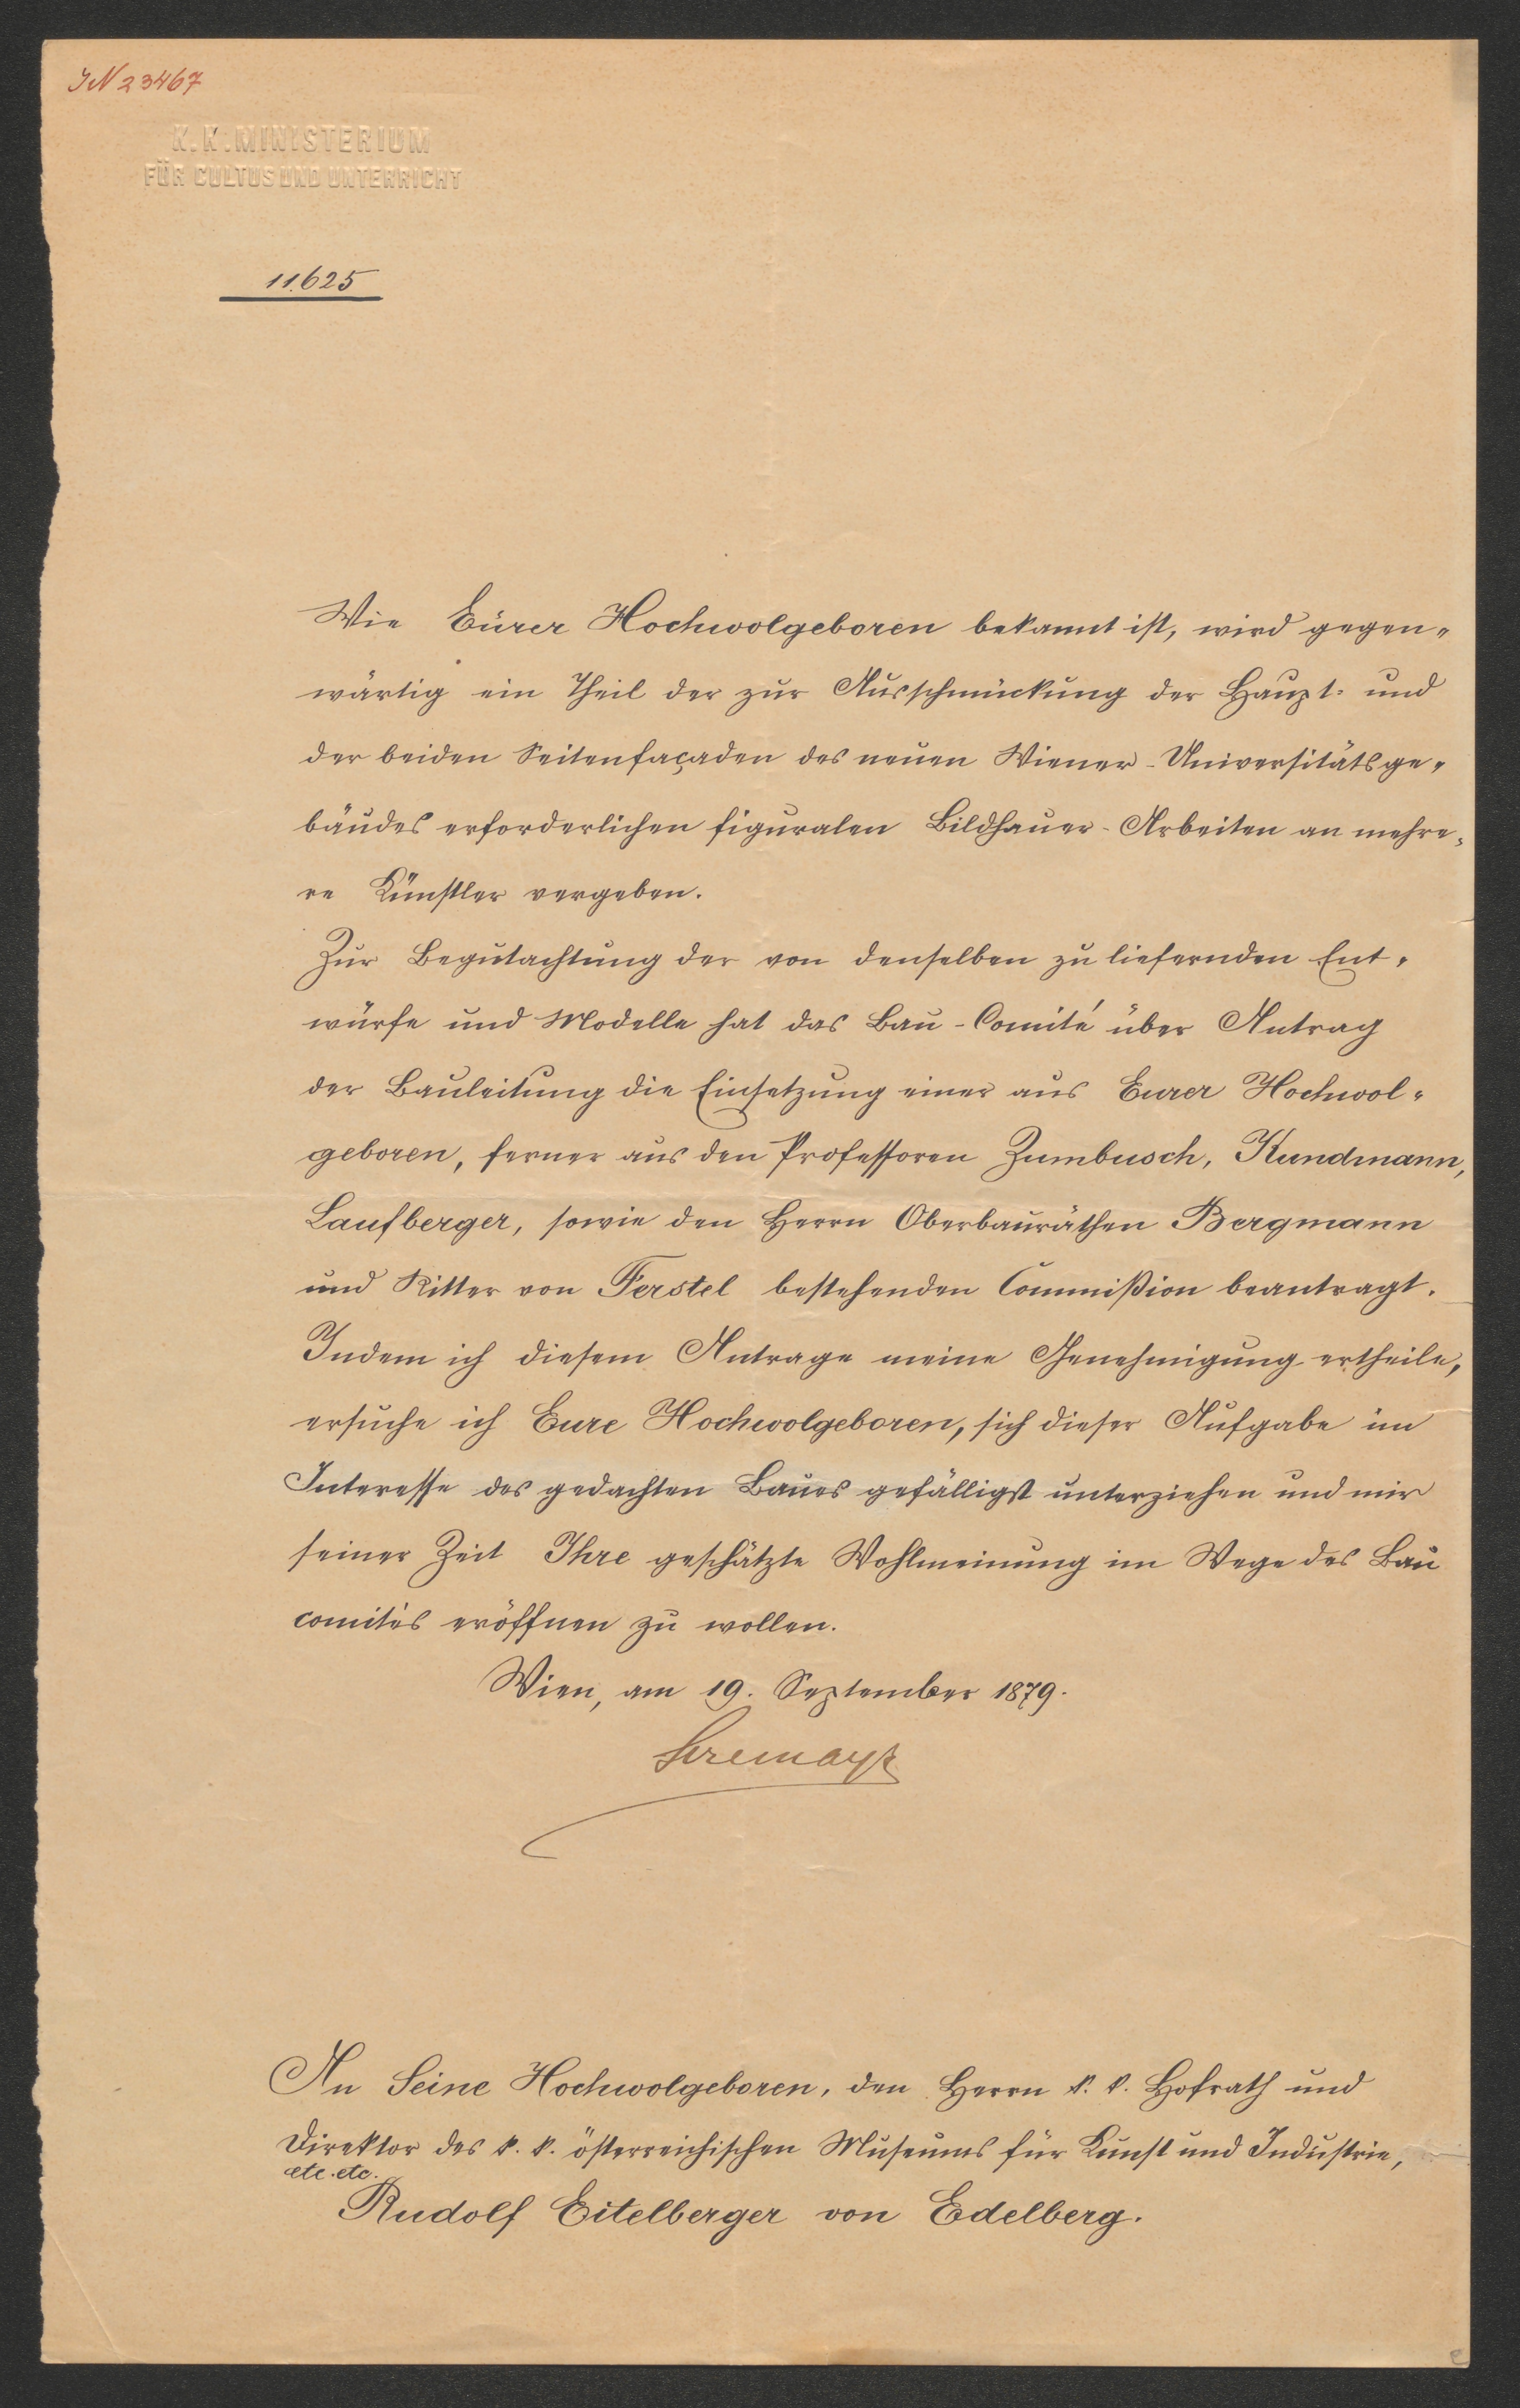 IN 23467
K. K. MINISTERIUM
FÜR CULTUS UND UNTERRICHT
11.625
Wie Eurer Hochwolgeboren bekannt ist, wird gegen-
wärtig ein Theil der zur Ausschmückung der Haupt- und
der beiden Seitenfaçaden des neuen Wiener-Universitätsge-
bäudes erforderlichen figuralen Bildhauer-Arbeiten an mehre-
re Künstler vergeben.
Zur Begutachtung der von denselben zu liefernden Ent-
würfe und Modelle hat das Bau-Comité über Antrag
der Bauleitung die Einsetzung einer aus Eurer Hochwol-
geboren, ferner aus den Professoren Zumbusch, Kundmann,
Laufberger, sowie den Herrn Oberbauräthen Bergmann
und Ritter von Ferstel bestehenden Commißion beantragt.
Indem ich diesem Antrage meine Genehmigung ertheile,
ersuche ich Eure Hochwolgeboren, sich dieser Aufgabe im
Interesse des gedachten Baues gefälligst unterziehen und mir
seiner Zeit Ihre geschätzte Wohlmeinung im Wege des Bau
comités eröffnen zu wollen.
Wien, am 19. September 1879.
Stremayr
An Seine Hochwolgeboren, den Herrn k. k. Hofrath und
Direktor des k. k. österreichischen Museums für Kunst und Industrie,
etc. etc.
Rudolf Eitelberger von Edelberg.